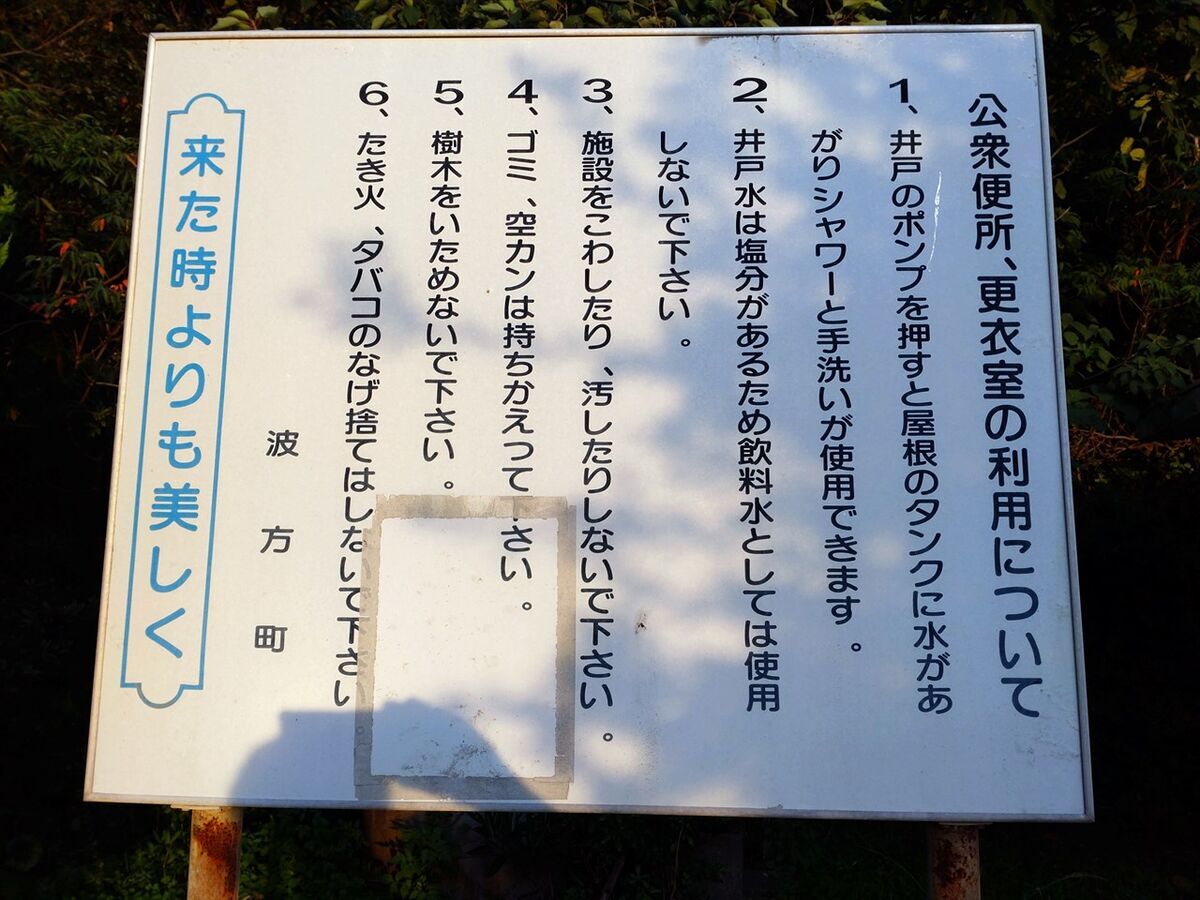 公衆便所、更衣室の利用について
1、井戸のポンプを押すと屋根のタンクに水があ
がりシャワーと手洗いが使用できます。
2、井戸水は塩分があるため飲料水としては使用
しないで下さい。
3、施設をこわしたり、汚したりしないで下さい。
4、ゴミ、空カンは持ちかえって下さい。
5、樹木をいためないで下さい。
6、たき火、タバコのなげ捨てはしないで下さい。
波方町
来た時よりも美しく